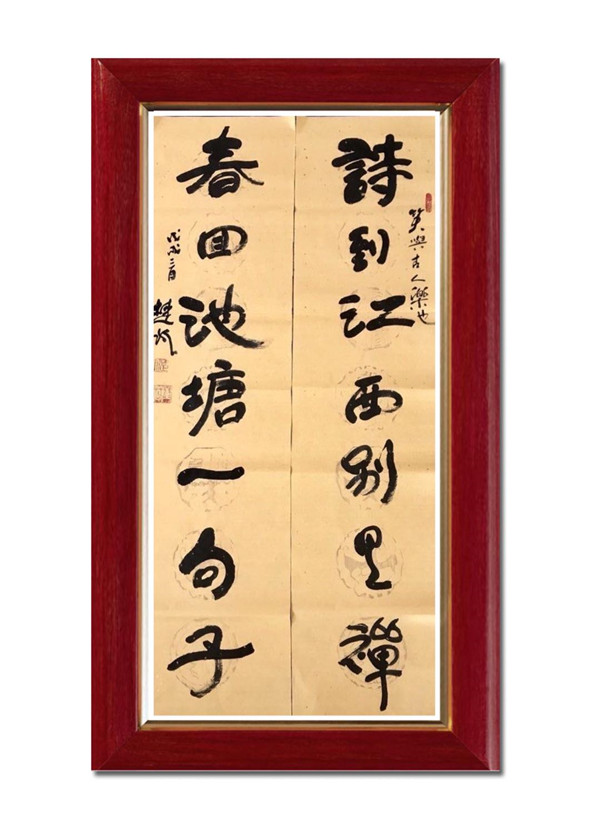 笑與古人樂也
詩到江西別是禪
春回池塘一句子
戊戌二月